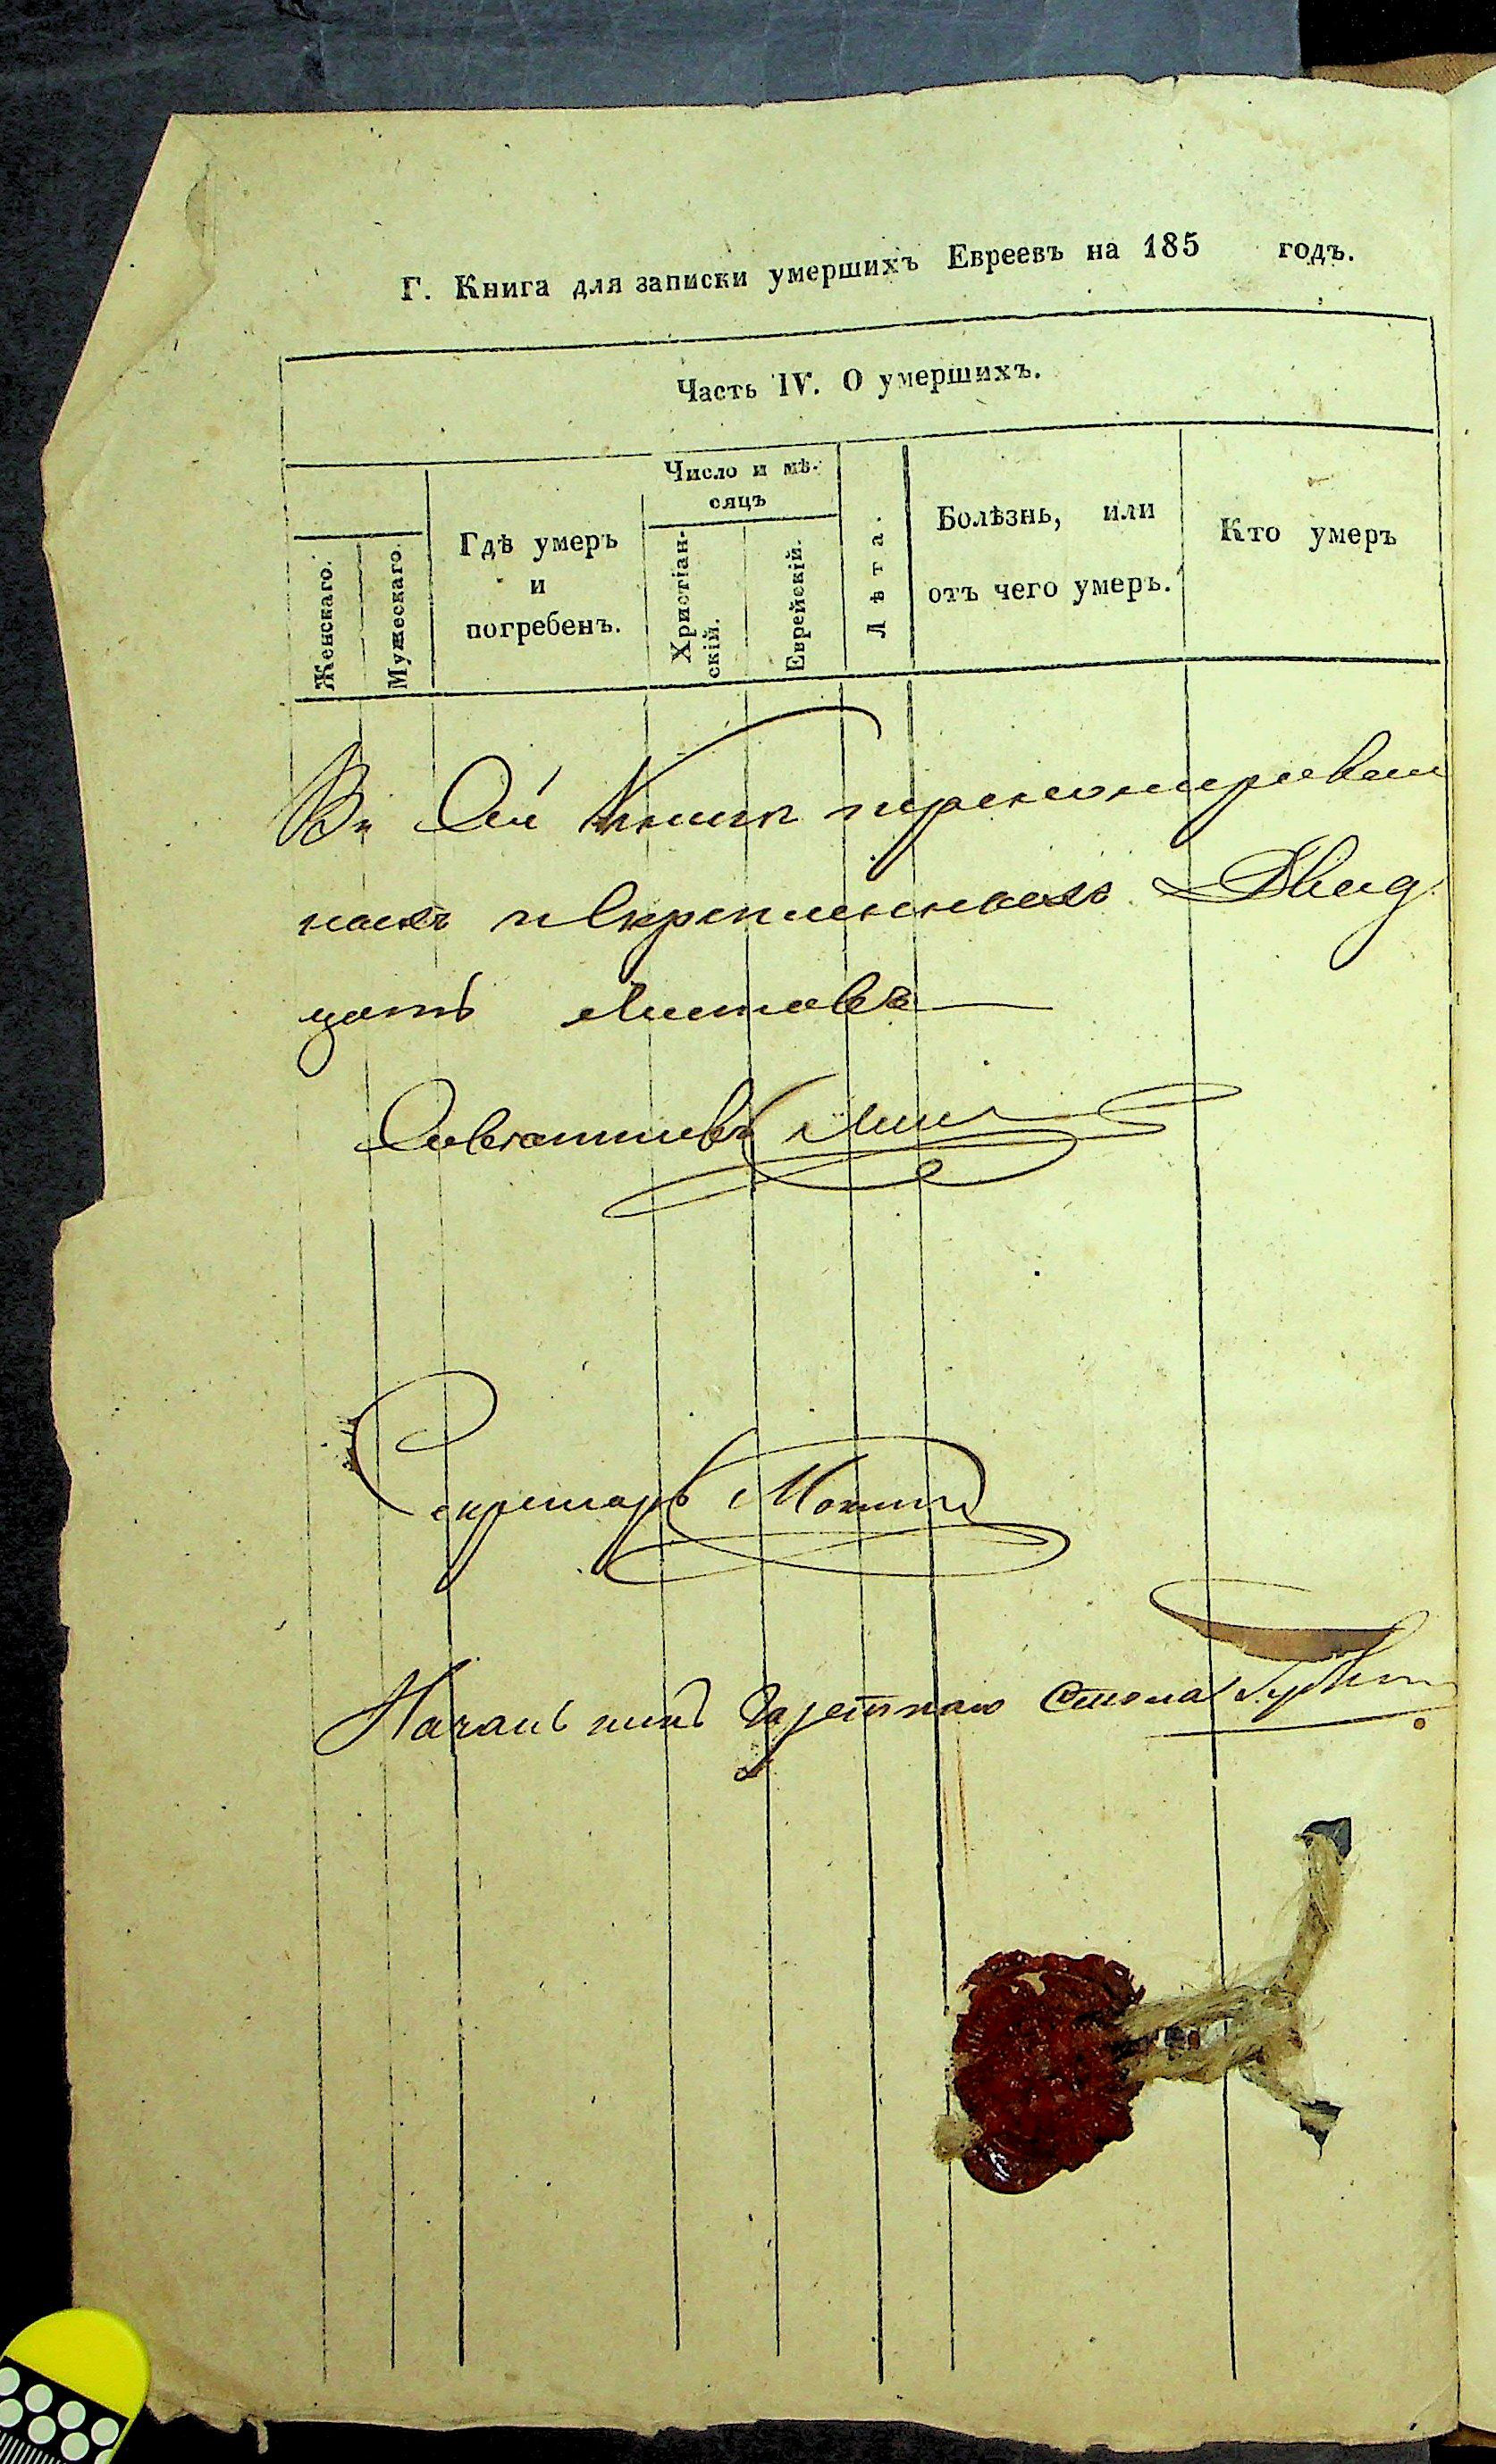 Г. Книга для записки умершихъ Евреевъ на 185 годъ.
Часть IV. О умершихъ.
Женскаго.
Мужескаго.
Гдѣ умеръ
и
погребенъ.
Число и мѣ-
сяцъ
Христіан-
скій.
Еврейскій.
Лѣта.
Болѣзнь, или
отъ чего умеръ.
Кто умеръ
Въ Сей Книгѣ пронумерован
ныхъ и Скрепленныхъ Двад
цать Листовъ
Совѣтникъ
Секретарь
Начальникъ Газетнаго Стола